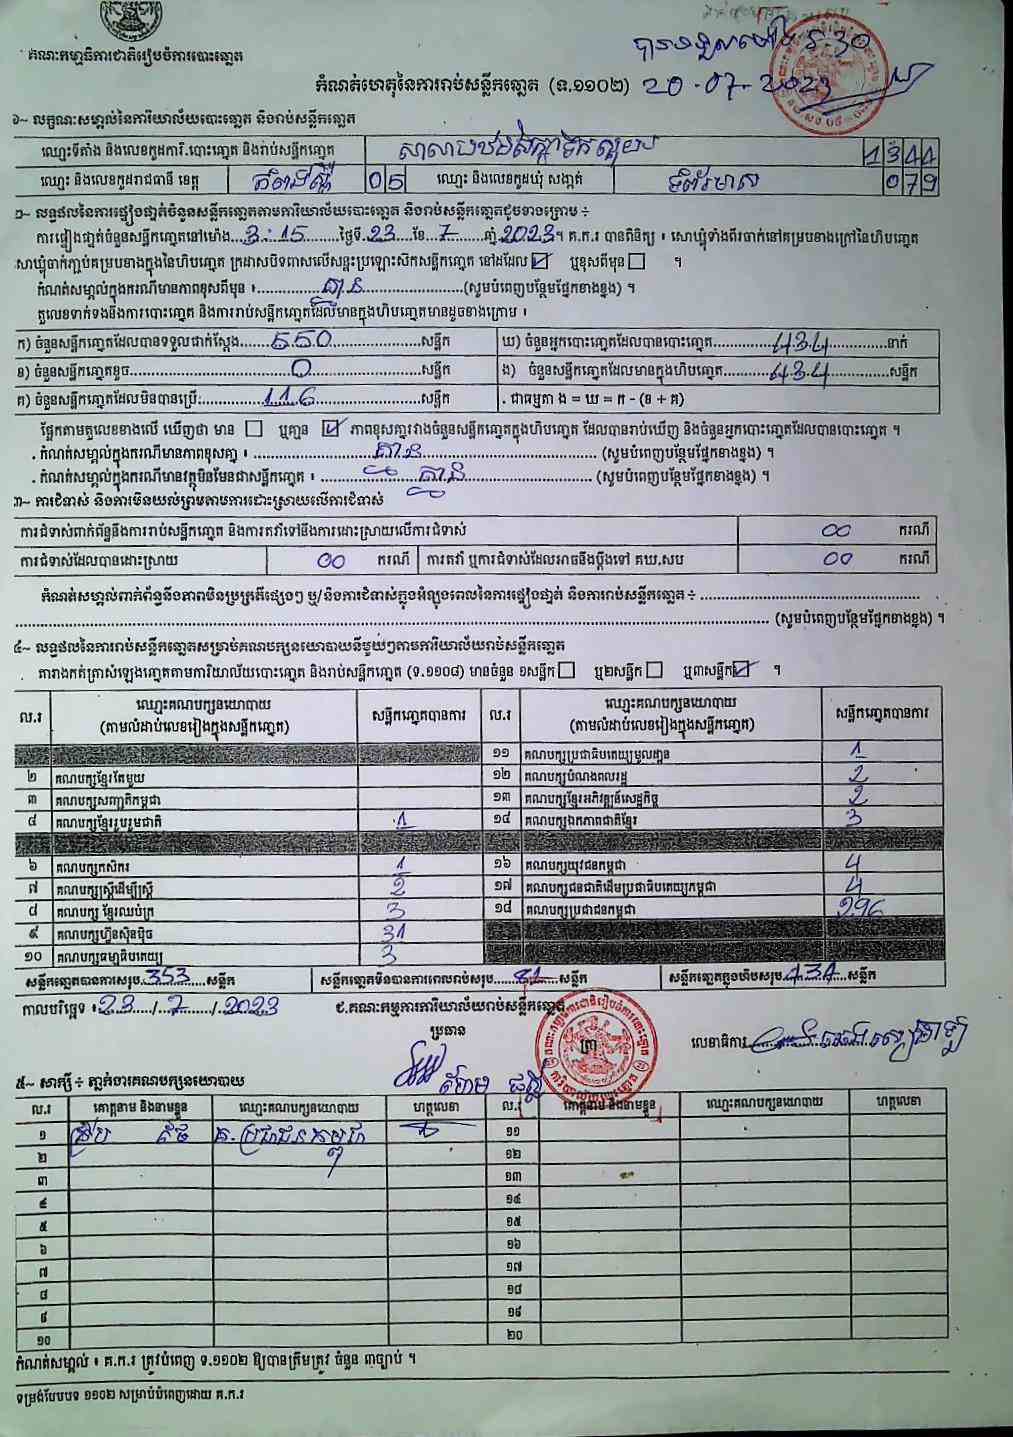 គណៈកម្មាធិការជាតិរៀបចំការបោះឆ្នោត
កំណត់ហេតុនៃការរាប់សន្លឹកឆ្នោត (ទ.១១០២)
20-07-2023
១~ លក្ខណៈសម្គាល់នៃការិយាល័យបោះឆ្នោត និងរាប់សន្លឹកឆ្នោត
ឈ្មោះទីតាំង និងលេខកូដការិ.បោះឆ្នោត និងរាប់សន្លឹកឆ្នោត 1344
ឈ្មោះ និងលេខកូដរាជធានី ខេត្ត កំពង់ស្ពឺ 05 ឈ្មោះ និងលេខកូដឃុំ សង្កាត់ 079
២~ លទ្ធផលនៃការផ្ទៀងផ្ទាត់ចំនួនសន្លឹកឆ្នោតតាមការិយាល័យបោះឆ្នោត និងរាប់សន្លឹកឆ្នោតដូចខាងក្រោម ÷
ការផ្ទៀងផ្ទាត់ចំនួនសន្លឹកឆ្នោតនៅម៉ោង 3:15 ថ្ងៃទី 23 ខែ 7 ឆ្នាំ 2023។ គ.ក.រ បានពិនិត្យ ៖ សោឃ្លុំទាំងពីរចាក់នៅគម្របខាងក្រៅនៃហិបឆ្នោត
សោឃ្លុំចាក់ភ្ជាប់គម្របខាងក្នុងនៃហិបឆ្នោត ក្រដាសបិទពាសលើសន្ទះប្រឡោះសឹកសន្លឹកឆ្នោត នៅដដែល ☑ ឬខុសពីមុន ☐ ។
កំណត់សម្គាល់ក្នុងករណីមានភាពខុសពីមុន ៖ គ្មាន (សូមបំពេញបន្ថែមផ្នែកខាងខ្នង) ។
តួលេខទាក់ទងនឹងការបោះឆ្នោត និងការរាប់សន្លឹកឆ្នោតដែលមានក្នុងហិបឆ្នោតមានដូចខាងក្រោម ៖
ក) ចំនួនសន្លឹកឆ្នោតដែលបានទទួលជាក់ស្តែង 550 សន្លឹក ឃ) ចំនួនអ្នកបោះឆ្នោតដែលបានបោះឆ្នោត 434 នាក់
ខ) ចំនួនសន្លឹកឆ្នោតខូច 0 សន្លឹក ង) ចំនួនសន្លឹកឆ្នោតដែលមានក្នុងហិបឆ្នោត 434 សន្លឹក
គ) ចំនួនសន្លឹកឆ្នោតដែលមិនបានប្រើ 116 សន្លឹក . ជាធម្មតា ង = ឃ = ក - (ខ + គ)
ផ្អែកតាមតួលេខខាងលើ ឃើញថា មាន ☐ ឬគ្មាន ☑ ភាពខុសគ្នារវាងចំនួនសន្លឹកឆ្នោតក្នុងហិបឆ្នោត ដែលបានរាប់ឃើញ និងចំនួនអ្នកបោះឆ្នោតដែលបានបោះឆ្នោត ។
. កំណត់សម្គាល់ក្នុងករណីមានភាពខុសគ្នា ៖ គ្មាន (សូមបំពេញបន្ថែមផ្នែកខាងខ្នង) ។
. កំណត់សម្គាល់ក្នុងករណីមានវត្ថុមិនមែនជាសន្លឹកឆ្នោត ៖ គ្មាន (សូមបំពេញបន្ថែមផ្នែកខាងខ្នង) ។
៣~ ការជំទាស់ និងការមិនយល់ព្រមតាមការដោះស្រាយលើការជំទាស់
ការជំទាស់ពាក់ព័ន្ធនឹងការរាប់សន្លឹកឆ្នោត និងការតវ៉ាទៅនឹងការដោះស្រាយលើការជំទាស់ 00 ករណី
ការជំទាស់ដែលបានដោះស្រាយ 00 ករណី ការតវ៉ា ឬការជំទាស់ដែលអាចនឹងប្តឹងទៅ គឃ.សប 00 ករណី
កំណត់សម្គាល់ពាក់ព័ន្ធនឹងភាពមិនប្រក្រតីផ្សេងៗ ឬ/និងការជំទាស់ក្នុងអំឡុងពេលនៃការផ្ទៀងផ្ទាត់ និងការរាប់សន្លឹកឆ្នោត ÷
(សូមបំពេញបន្ថែមផ្នែកខាងខ្នង) ។
៤~ លទ្ធផលនៃការរាប់សន្លឹកឆ្នោតសម្រាប់គណបក្សនយោបាយនីមួយៗតាមការិយាល័យរាប់សន្លឹកឆ្នោត
តារាងកត់ត្រាសំឡេងឆ្នោតតាមការិយាល័យបោះឆ្នោត និងរាប់សន្លឹកឆ្នោត (ទ.១១០៨) មានចំនួន ១សន្លឹក ☐ ឬ២សន្លឹក ☐ ឬ៣សន្លឹក ☑ ។
ល.រ ឈ្មោះគណបក្សនយោបាយ (តាមលំដាប់លេខរៀងក្នុងសន្លឹកឆ្នោត) សន្លឹកឆ្នោតបានការ ល.រ ឈ្មោះគណបក្សនយោបាយ (តាមលំដាប់លេខរៀងក្នុងសន្លឹកឆ្នោត) សន្លឹកឆ្នោតបានការ
១១ គណបក្សប្រជាធិបតេយ្យមូលដ្ឋាន 1
២ គណបក្សខ្មែរតែមួយ ១២ គណបក្សបំណងពលរដ្ឋ 2
៣ គណបក្សសញ្ជាតិកម្ពុជា ១៣ គណបក្សខ្មែរអភិវឌ្ឍន៍សេដ្ឋកិច្ច 2
៤ គណបក្សខ្មែររួបរួមជាតិ 1 ១៤ គណបក្សឯកភាពជាតិខ្មែរ 3
៦ គណបក្សកសិករ 1 ១៦ គណបក្សយុវជនកម្ពុជា 4
៧ គណបក្សស្ត្រីដើម្បីស្ត្រី 2 ១៧ គណបក្សជនជាតិដើមប្រជាធិបតេយ្យកម្ពុជា 4
៨ គណបក្ស ខ្មែរឈប់ក្រ 3 ១៨ គណបក្សប្រជាជនកម្ពុជា 296
៩ គណបក្សហ៊្វុនស៊ិនប៉ិច 31
១០ គណបក្សធម្មាធិបតេយ្យ 3
សន្លឹកឆ្នោតបានការសរុប 353 សន្លឹក សន្លឹកឆ្នោតមិនបានការពេលរាប់សរុប 81 សន្លឹក សន្លឹកឆ្នោតក្នុងហិបសរុប 434 សន្លឹក
កាលបរិច្ឆេទ ៖ 23/7/2023 ជ.គណៈកម្មការការិយាល័យរាប់សន្លឹកឆ្នោត
ប្រធាន
លេខាធិការ
៥~ សាក្សី ÷ ភ្នាក់ងារគណបក្សនយោបាយ
ល.រ គោត្តនាម និងនាមខ្លួន ឈ្មោះគណបក្សនយោបាយ ហត្ថលេខា ល.រ គោត្តនាម និងនាមខ្លួន ឈ្មោះគណបក្សនយោបាយ ហត្ថលេខា
១ គ.ប្រជាជនកម្ពុជា ១១
២ ១២
៣ ១៣
៤ ១៤
៥ ១៥
៦ ១៦
៧ ១៧
៨ ១៨
៩ ១៩
១០ ២០
កំណត់សម្គាល់ ៖ គ.ក.រ ត្រូវបំពេញ ទ.១១០២ ឱ្យបានត្រឹមត្រូវ ចំនួន ៣ច្បាប់ ។
ទម្រង់បែបបទ ១១០២ សម្រាប់បំពេញដោយ គ.ក.រ